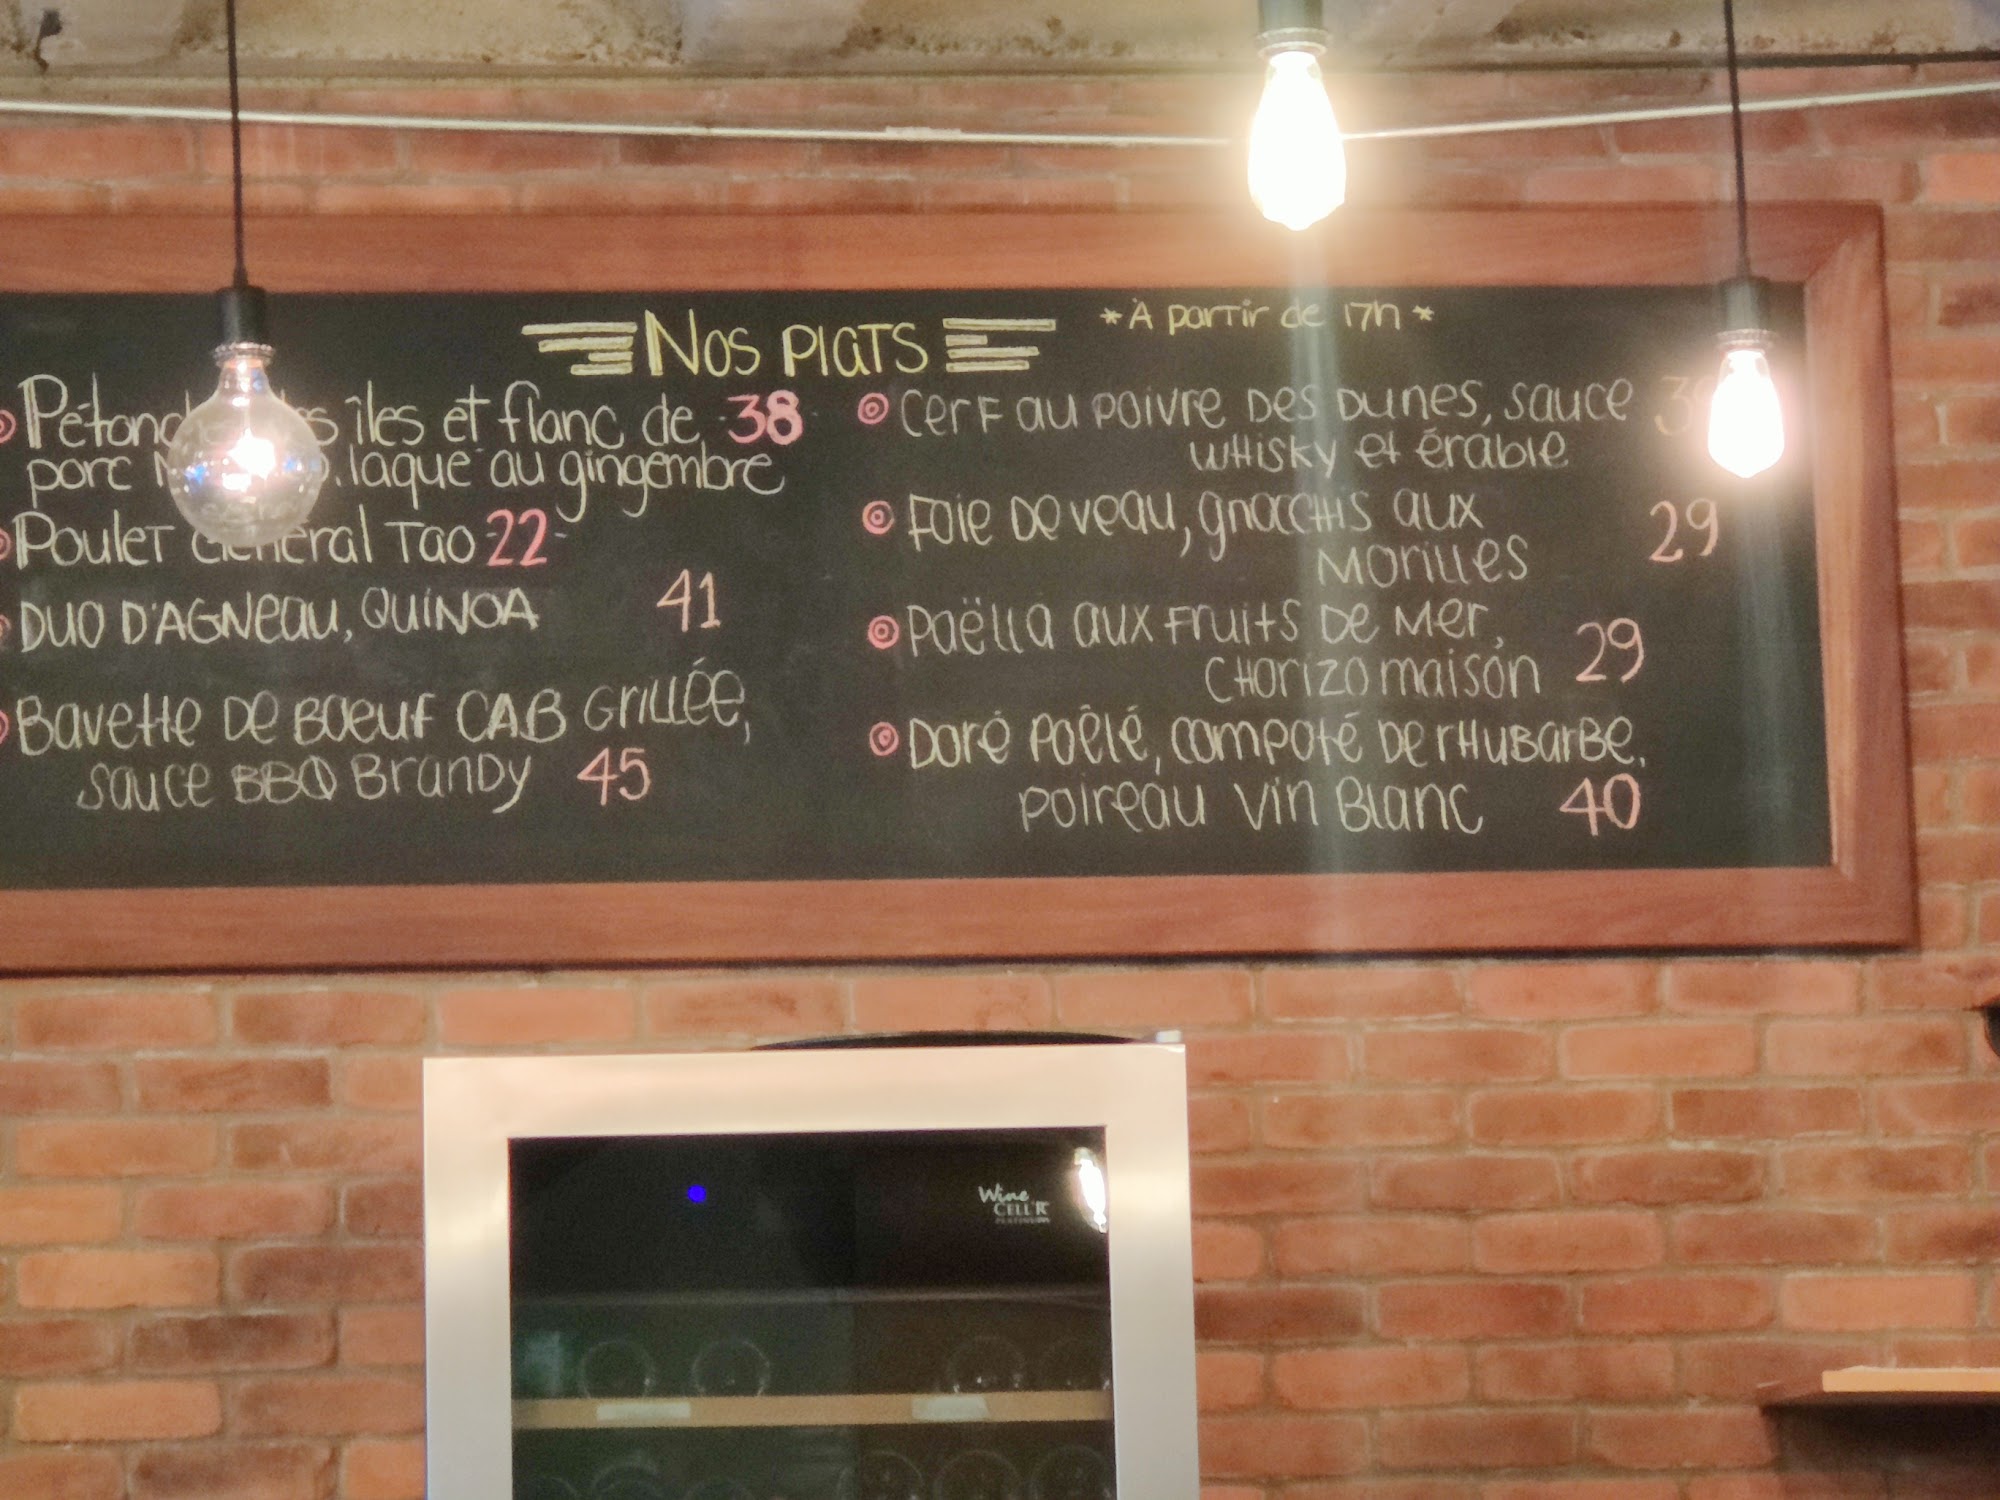 Nos plats
*À partir de 17h*
îles et flanc de 38
porc laqué au gingembre
Poulet Général Tao 22
Duo d'agneau, quinoa 41
Bavette de boeuf CAB grillée,
sauce BBQ Brandy 45
Cerf au poivre des dunes, sauce
whisky et érable
Foie de veau, gnocchis aux 29
morilles
Paëlla aux fruits de mer,
chorizo maison 29
Doré poêlé, compoté de rhubarbe,
poireau vin blanc 40
Wine
CELL'R
PLATINUM